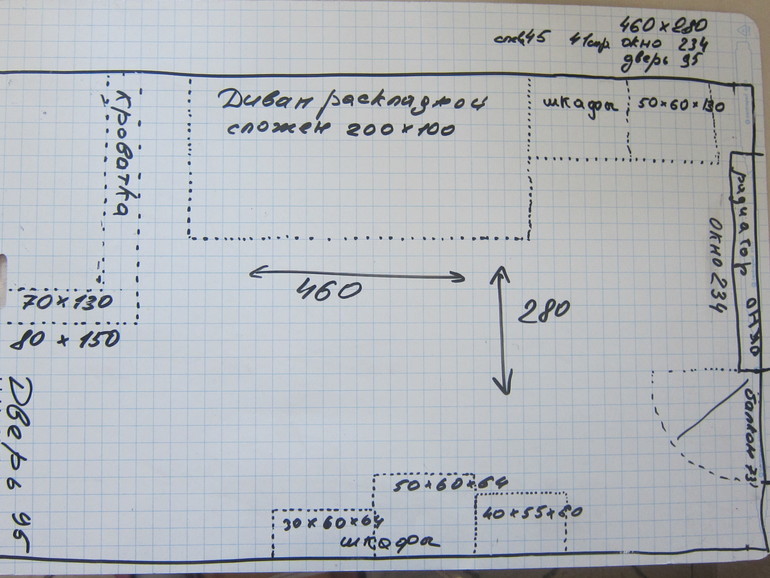 460×280
окно 234
дверь 95
Диван раскладной
сложен 200×100
шкафы
50×60×130
кроватка
радиатор окно
окно 234
70×130
80×150
460
280
Дверь 95
балкон 73
50×60×64
30×60×64
шкафы